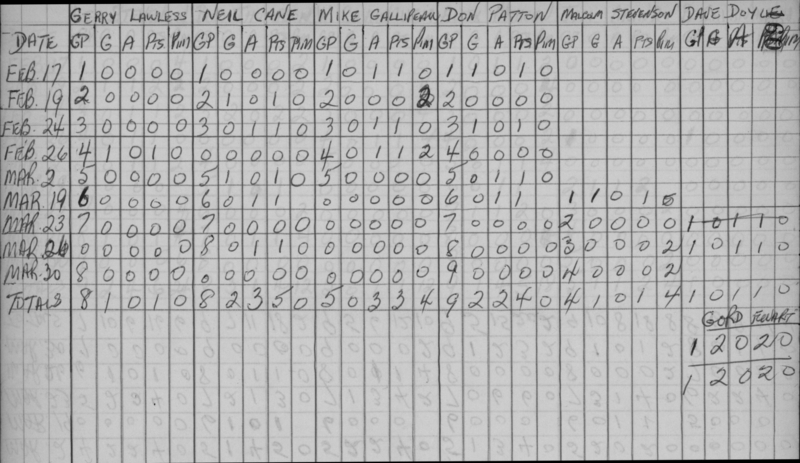 GERRY LAWLESS NEIL CANE MIKE GALLIPEAU DON PATTON MALCOM STEVENSON DAVE DOYLE
DATE GP G A PTS PIM GP G A PTS PIM GP G A PTS PIM GP G A PTS PIM GP G A PTS PIM GP G A PIM
FEB. 17 1 0 0 0 0 1 0 0 0 0 1 0 1 1 0 1 1 0 1 0
FEB. 19 2 0 0 0 0 2 1 0 1 0 2 0 0 0 2 2 0 0 0 0
FEB. 24 3 0 0 0 0 3 0 1 1 0 3 0 1 1 0 3 1 0 1 0
FEB. 26 4 1 0 1 0 0 0 0 0 0 4 0 1 1 2 4 0 0 0 0
MAR. 2 5 0 0 0 0 5 1 0 1 0 5 0 0 0 0 5 0 1 1 0
MAR. 19 6 0 0 0 0 6 0 1 1 0 0 0 0 0 6 0 1 1 1 1 0 1 0
MAR. 23 7 0 0 0 0 7 0 0 0 0 0 0 0 0 0 7 0 0 0 0 2 0 0 0 0 1 0 1 1 0
MAR. 0 0 0 0 0 8 0 1 1 0 0 0 0 0 0 8 0 0 0 0 3 0 0 0 2 1 0 1 1 0
MAR. 30 8 0 0 0 0 0 0 0 0 0 0 0 0 0 0 9 0 0 0 0 4 0 0 0 2
TOTALS 8 1 0 1 0 8 2 3 5 0 5 0 3 3 4 9 2 2 4 0 4 1 0 1 4 1 0 1 1 0
GORD
1 2 0 2 0
1 2 0 2 0